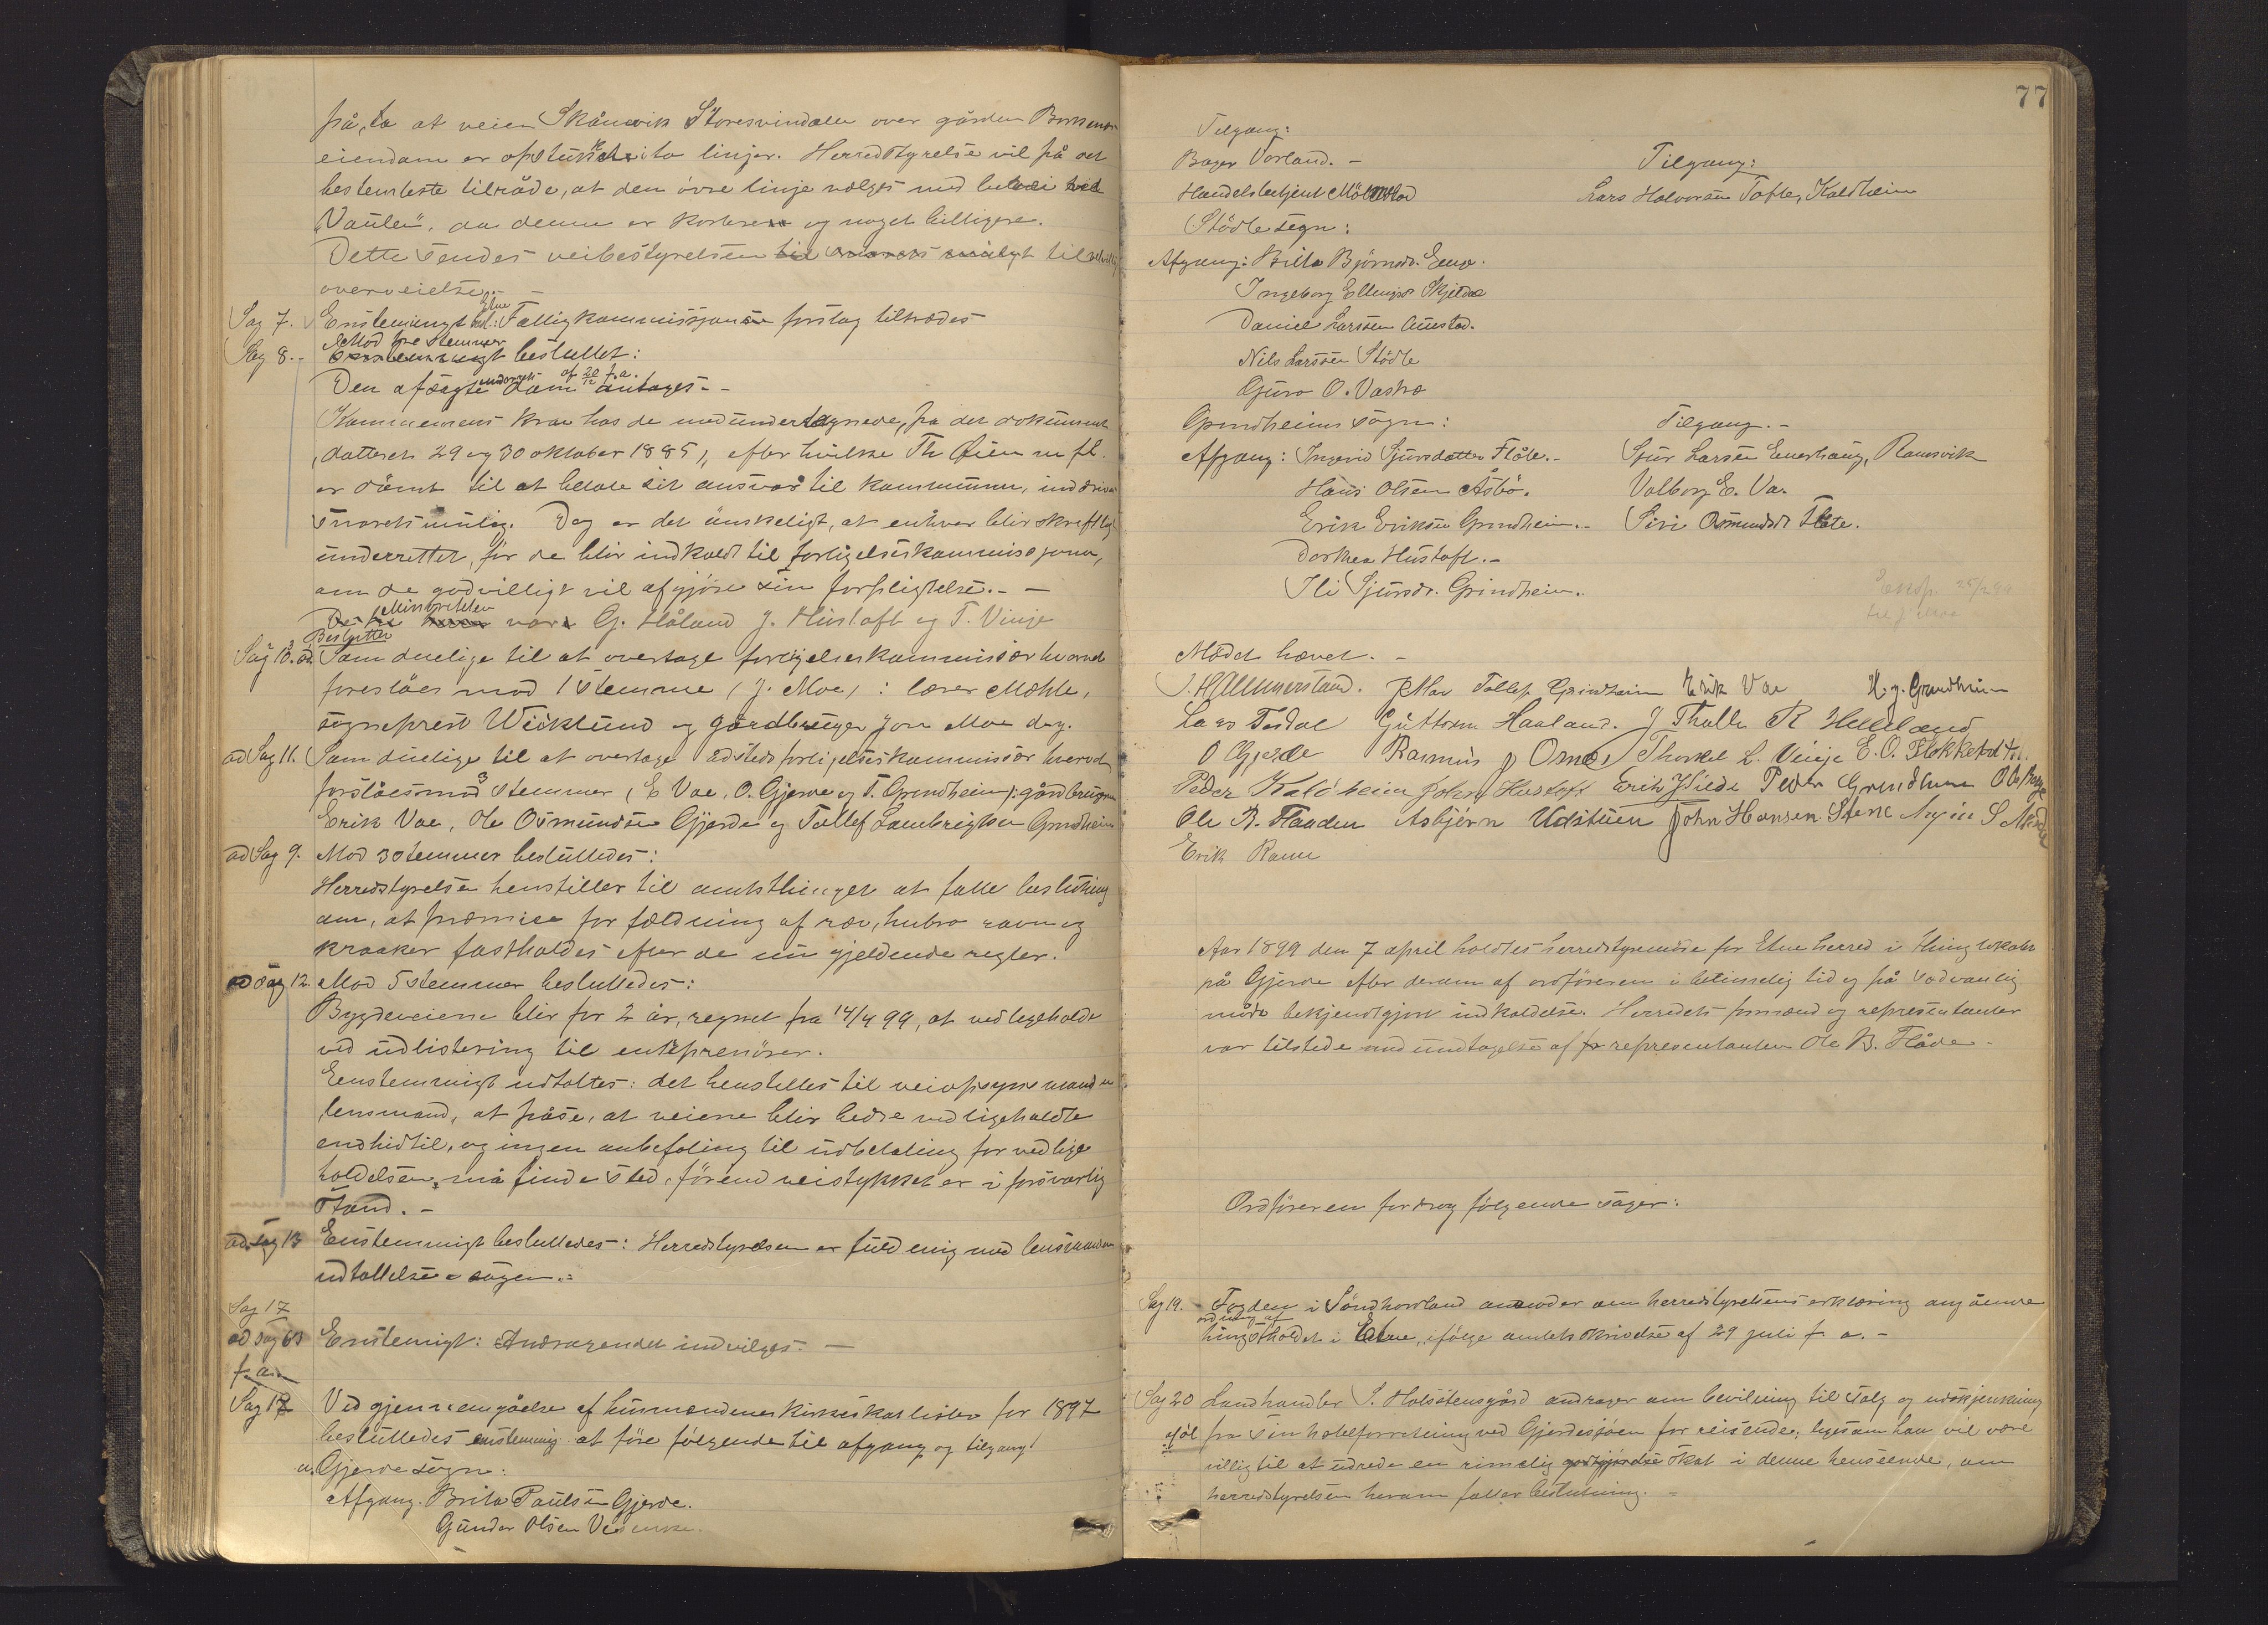 på, ta at veien Skånevik Storesvindalen over gården
eiendam er opstukket i to linjer. Herredstyrelse vil på det
bestemteste tilråde, at den övre linje vælges med
"Vaulen", da denne er kortere og noget billigere.
Dette sendes veibestyrelsen til velvillig
overveielse. -
Sag 7. Enstemmigt besl: Etne Fattigkommissjons forslag tiltrædes
Sag 8. - Mod tre stemmer besluttet:
Den afsagte underrets dom af 20/12 f. a. antages. -
Kommunens krav hos de medundertegnede, fra det dokument
(datteret 29 og 30 oktober 1885), efter hvilke Th. Øien m fl.
er dömt til at betale sit ansvar til kommunen, inddrives
snarest mulig. Dog er det önskeligt, at enhver blir skriftligt
underrettet, för de blir indkaldt til forligelseskommissjonen,
om de godvilligt vil afgjöre sin forpligtelse. -
Minoriteten var G. Håland J. Hustoft og T. Vinje
Beslutter
Sag 10. Som duelige til at overtage forligelseskommissær hvervet
foreslåes mod 1 stemme (J. Moe): lærer Mæhle,
sogneprest Wicklund og gårdbruger Jon Moe dog.
ad Sag 11. Som duelige til at overtage adsteds forligelseskommissær hvervet
forslåes mod 3 stemmer (E Vae, O. Gjerde og T. Grindheim): gårdbrugerne
Erik Vae, Ole Osmundsen Gjerde og Tollef Lambrigtsen Grindheim
ad Sag 9. Mod 3 stemmer besluttedes:
Herredstyrelsen henstiller til amtsthinget at fatte beslutning
om, at præmier for fældning af ræv, hubro ravn og
kraaker fastholdes efter de nu gjeldende regler.
ad sag 12. Mod 5 stemmer besluttedes:
Bygdeveiene blir for 2 år, regnet fra 14/4 99, at vedligeholde
ved udlistering til entreprenörer.
Eenstemmigt udtaltes: det henstilles til veiopsynsmanden
lensmand, at påse, at veiene blir bedre vedligeholdte
end hidtil, og ingen anbefaling til udbetaling for vedlige
holdelsen må finde sted, förend veistykket er i forsvarlig
stand. -
ad sag 13 Enstemmigt besluttedes: Herredstyrelsen er fuld enig med lensmandens
udtallelse i sagen.
Sag 17
ad sag 63 Enstemigt: Andragendet indvilges. -
f. a.
Sag 17 Ved gjennemgåelse af husmændenes kirkeskatlister for 1897
besluttedes enstemmig at före følgende til afgang og tilgang:
a. Gjerde sogn:
Afgang. Brita Paulsen Gjerde.
Gunder Olsen
77
Tilgang:
Bager Vorland. -
Handelsbetjent
Tilgang:
Lars Halvorsen Tofte, Kaldheim
Stödle sogn:
Afgang: Brita Björnsdr.
Ingeborg Ellingsdr Skjelde
Daniel Larssen Auestad.
Nils Larssen Stödle
Guro O. Vastre
Grindheims sogn:
Tilgang. -
Afgang: Ingerid Sjursdatter Flåte. - Sjur Larsen Enershaug, Ramsvik
Hans Olsen Åsbö. Valborg E. Va.
Erik Eriksen Grindheim. - Siri Osmundsdr Flåte.
Dorthea Hustoft. -
Ili Sjursdr. Grindheim.
Eksp. 25/2 99
Mödet hævet. -
J Moe Tollef Grindheim Erik Vae H. J. Grindheim
Lars Tesdal Guttorm Haaland. J Thalle R Helleland
O Gjerde Rasmus J Ornes Thorkel L. Vinje E. O. Flokketvedt
Peder Kaldheim John Hustoft Erik Hilde Peder Grindheim
Ole B. Flaaden Asbjörn Udstuen John Hansen Stene
Erik Ramn
Aar 1899 den 7 april holdtes herredstyremöde for Etne herred i thinglokalet
på Gjerde efter derom af ordföreren i betimelig tid og på sedvanlig
måde bekjendtgjort indkaldelse. Herredets formænd og representanter
var tilstede med undtagelse af representanten Ole B. Flåde. -
Ordföreren fordrog følgende sager:
Sag 19. Fogden i Söndhordland anmoder om herredstyrelsens erklæring angående
ordning af
thingstholdet i Etne, ifølge amtets skrivelse af 29 juli f. a. -
Sag 20 Landhandler S. Halstensgård andrager om bevilning til salg og udskjænkning
af öl fra sin hotelforretning ved Gjerdesjöen for reisende; ligesom han vil være
villig til at udrede en rimelig skat i denne henseende, om
herredstyrelsen herom fatter beslutning. -